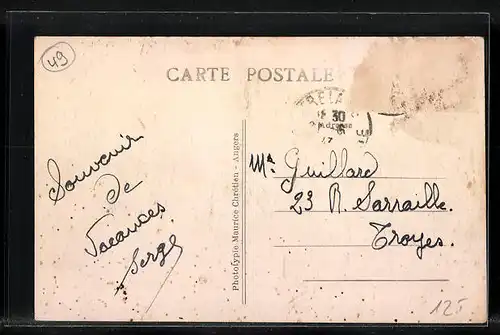 49
CARTE POSTALE
TRELA
30
Souvenir
de
Vacances
Serge
Phototypie Maurice Chrétien - Angers
Mr. Guillard
23 R. Sarraille.
Troyes.
125